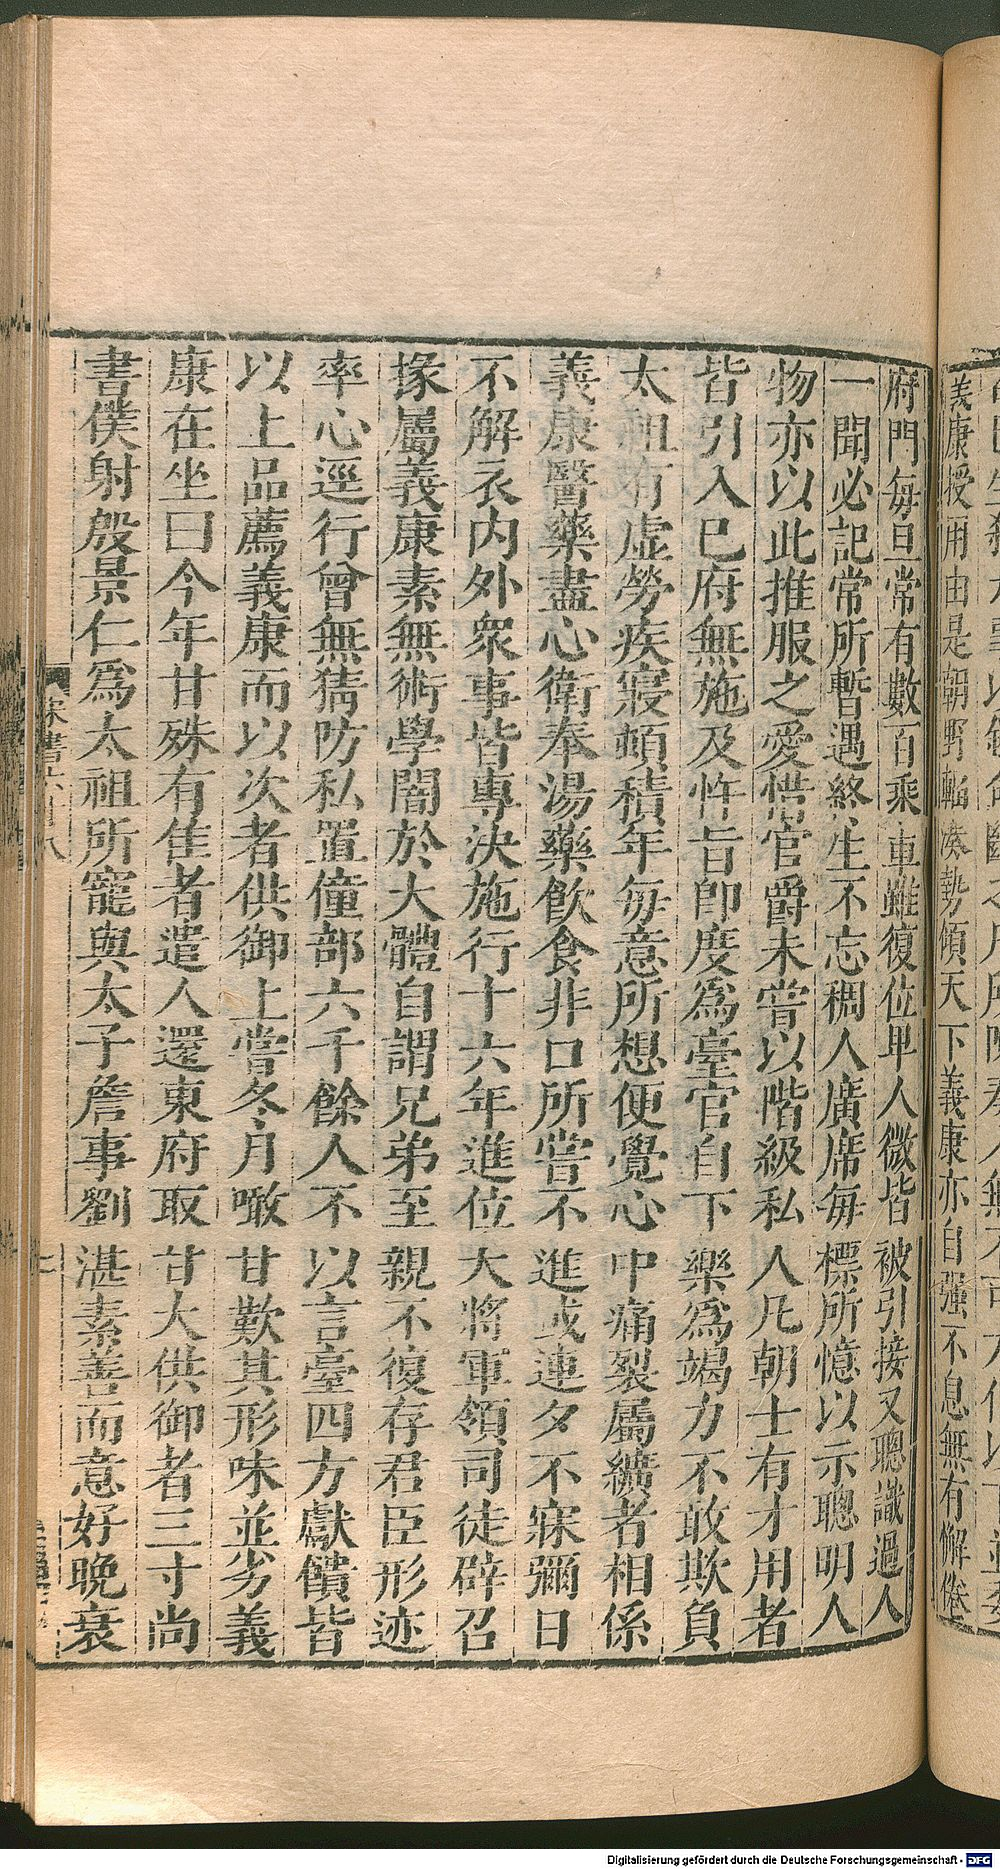 義康授用由是朝野輻湊勢傾天下義康亦自强不息無有解倦
府門每旦常有數百乘車雖復位卑人微皆被引接又聰識過人
一聞必記常所暫遇終生不忘稠人廣席每標所憶以示聰明人
物亦以此推服之愛惜官爵未甞以階級私人凡朝士有才用者
皆引入已府無施及忤旨卽度爲臺官自下樂爲竭力不敢欺負
太祖有虛勞疾寢頓積年每意所想便覺心中痛裂屬纊者相係
義康醫藥盡心衛奉湯藥飲食非口所甞不進或連夕不寐彌日
不解衣內外衆事皆專決施行十六年進位大將軍領司徒辟召
掾屬義康素無術學闇於大體自謂兄弟至親不復存君臣形迹
率心逕行曾無猜防私置僮部六千餘人不以言臺四方獻饋皆
以上品薦義康而以次者供御上嘗冬月噉甘歎其形味並劣義
康在坐曰今年甘殊有佳者遣人還東府取甘大供御者三寸尚
書僕射殷景仁爲太祖所寵與太子詹事劉湛素善而意好晚衰
宋書六十八
七
Digitalisierung gefördert durch die Deutsche Forschungsgemeinschaft - DFG